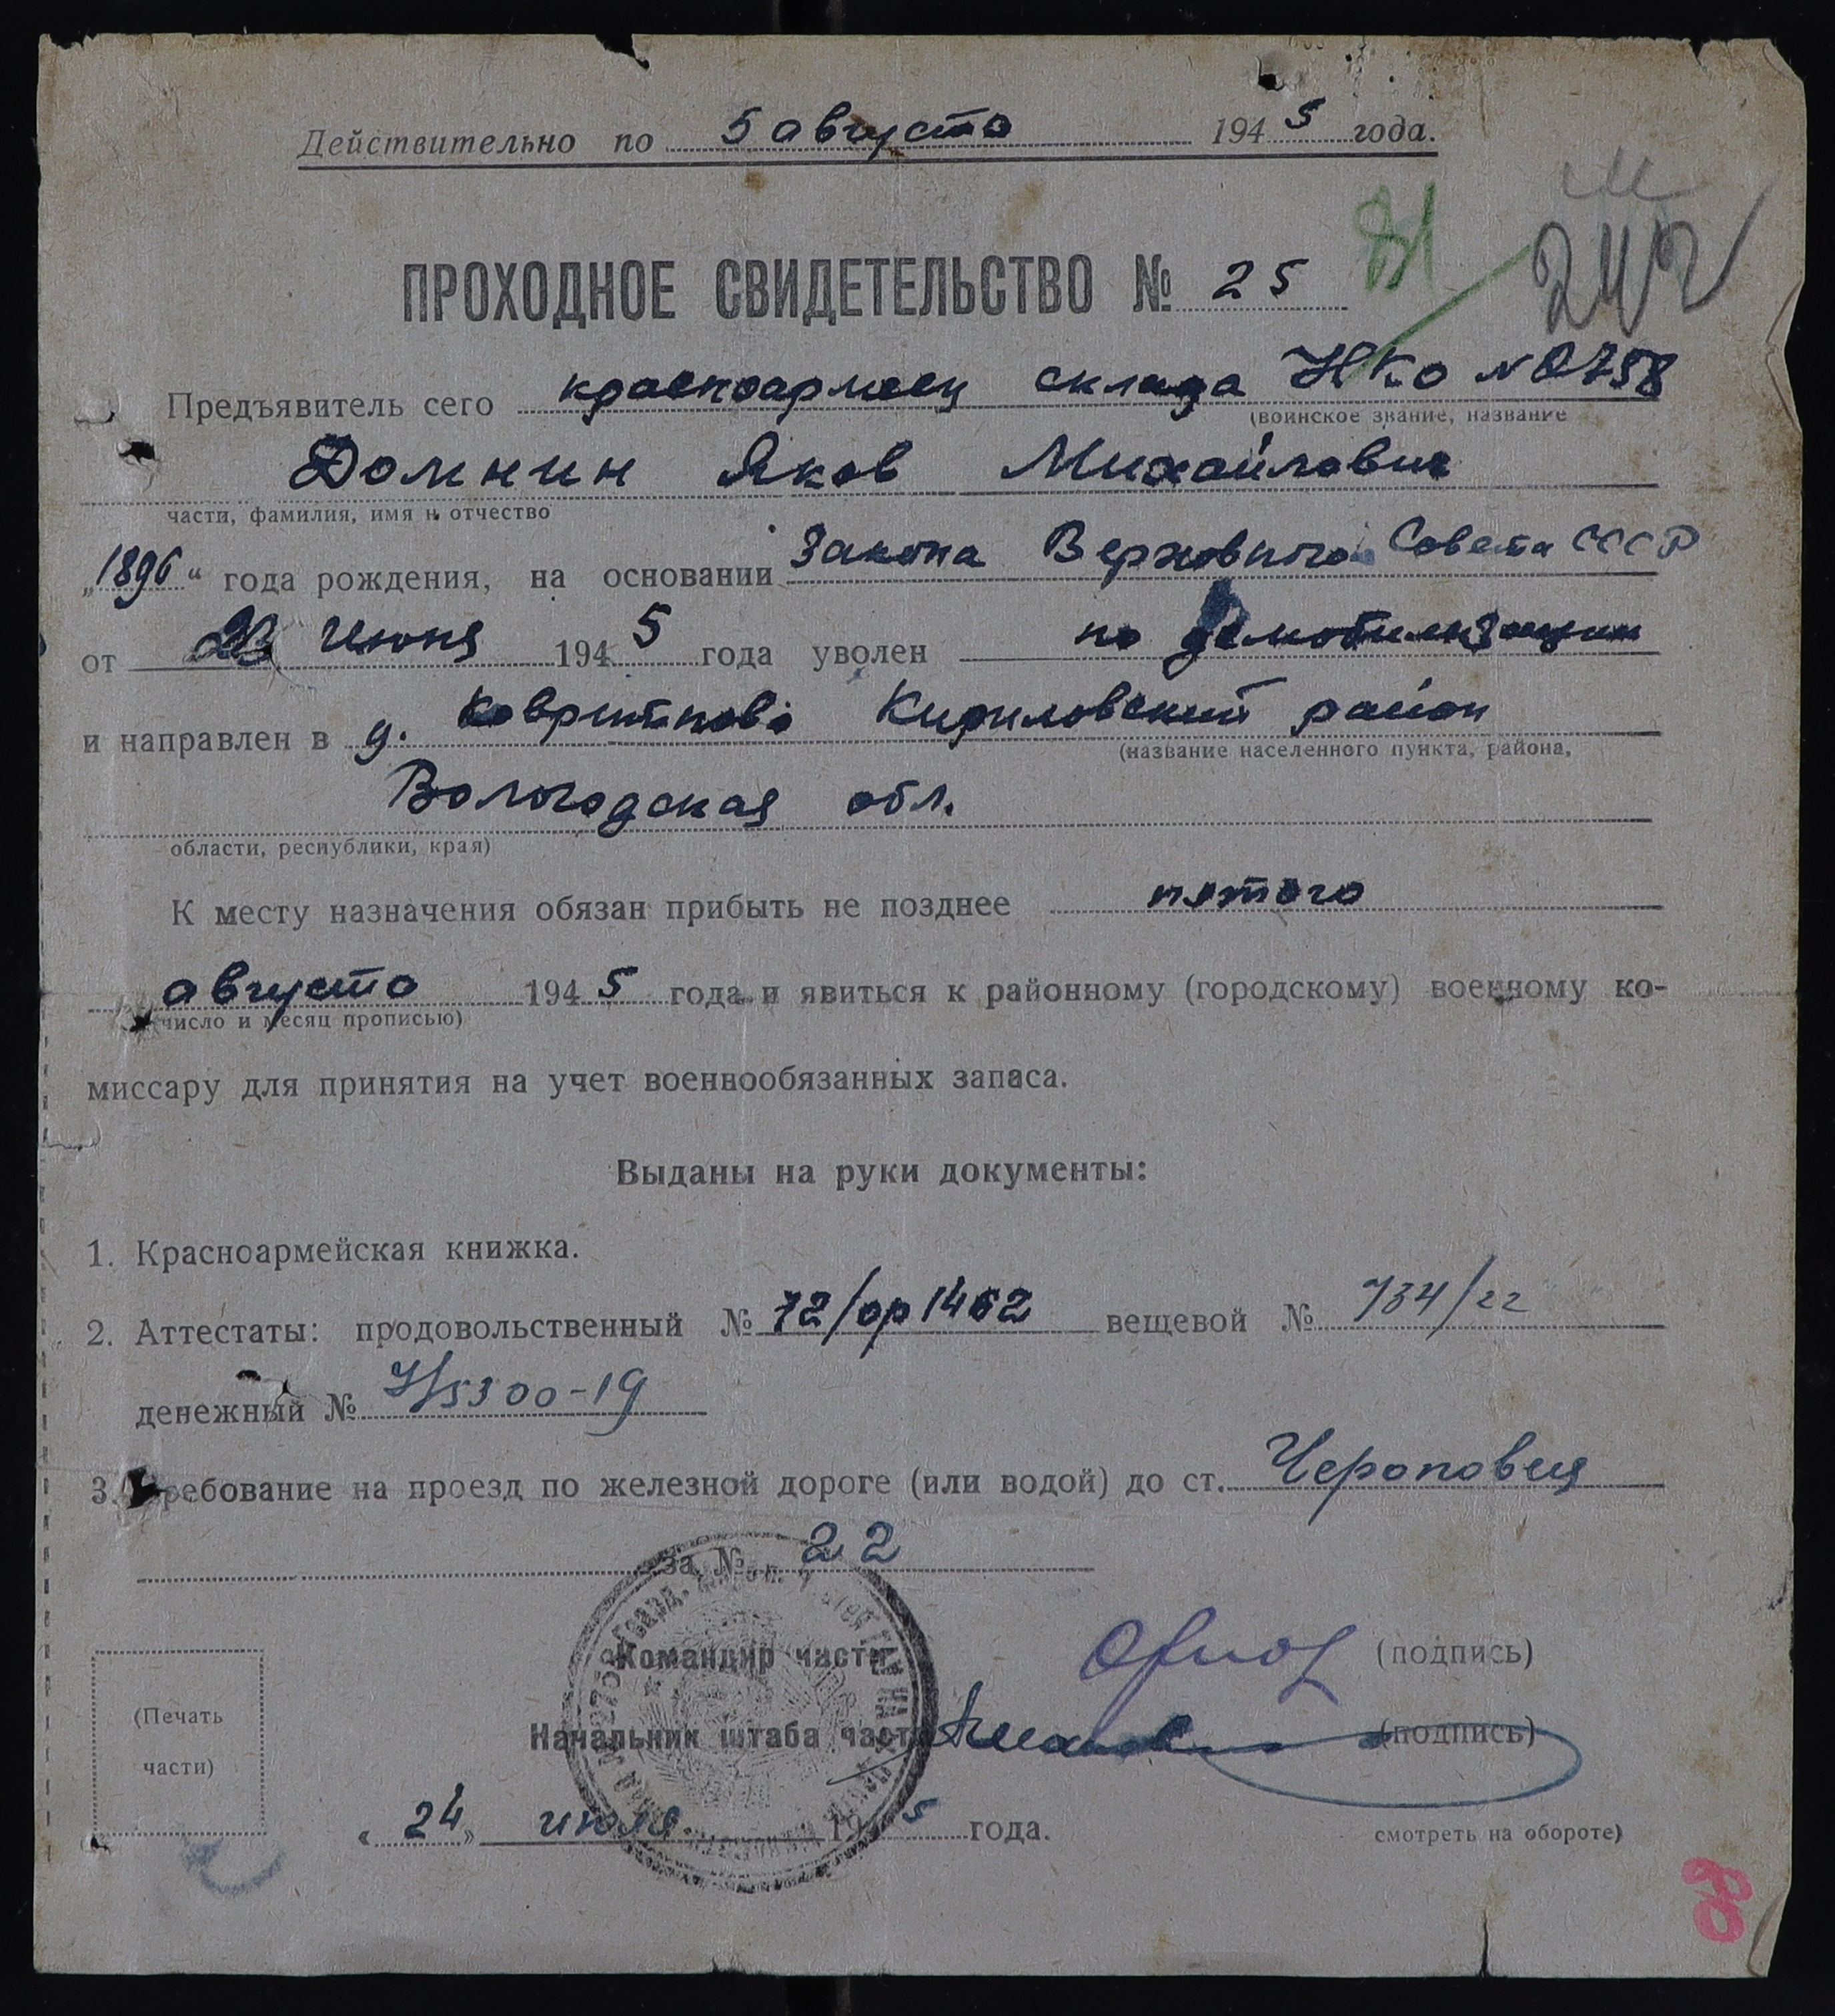 Действительно по 5 августа 1945 года.
ПРОХОДНОЕ СВИДЕТЕЛЬСТВО № 25
81
242
Предъявитель сего красноармеец склада НКО № 2758
(воинское звание, название
Домнин Яков Михайлович
части, фамилия, имя и отчество
„1896“ года рождения, на основании Закона Верховного Совета СССР
от 23 Июня 1945 года уволен по демобилизации
и направлен в д. Кириловский район
(название населенного пункта, района,
Вологодская обл.
области, республики, края)
К месту назначения обязан прибыть не позднее пятого
августа 1945 года и явиться к районному (городскому) военному ко-
число и месяц прописью)
миссару для принятия на учет военнообязанных запаса.
Выданы на руки документы:
1. Красноармейская книжка.
2. Аттестаты: продовольственный № 72/ор1462 вещевой № 734/22
денежный № 5300-19
3. Требование на проезд по железной дороге (или водой) до ст. Череповец
за № 22
Командир части (подпись)
Начальник штаба части (подпись)
(Печать
части)
« 24 » июля 1945 года.
смотреть на обороте)